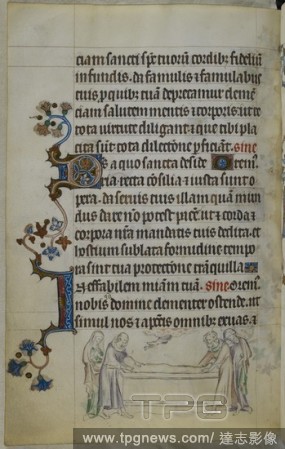 ciam sancti sp̃c tuorũ cordib; fideliũ
infundis. da famulis & famulabus
tuis p quib; tuã deprecamur clemẽ
ciam salutem mentis & corporis. ut te
tota virtute diligant & que tibi pla
cita sũt tota dilectõne pficiant. sine
D s a quo sancta deside Orem;
ria recta cõsilia & iusta sunt o
pera. da seruis tuis illam quã mun
dus dare nõ potest pacẽ. ut & corda &
corpora nr̃a mandatis tuis dedita. et
hostium sublata formidine tempo
ra sint tua protectõne trãquilla
I neffabilem miam tuã. sine Orem;
nobis domine clementer ostende. ut
simul nos & a pctis omnib; exuas. &
TPG
www.tpgnews.com/ 達志影像